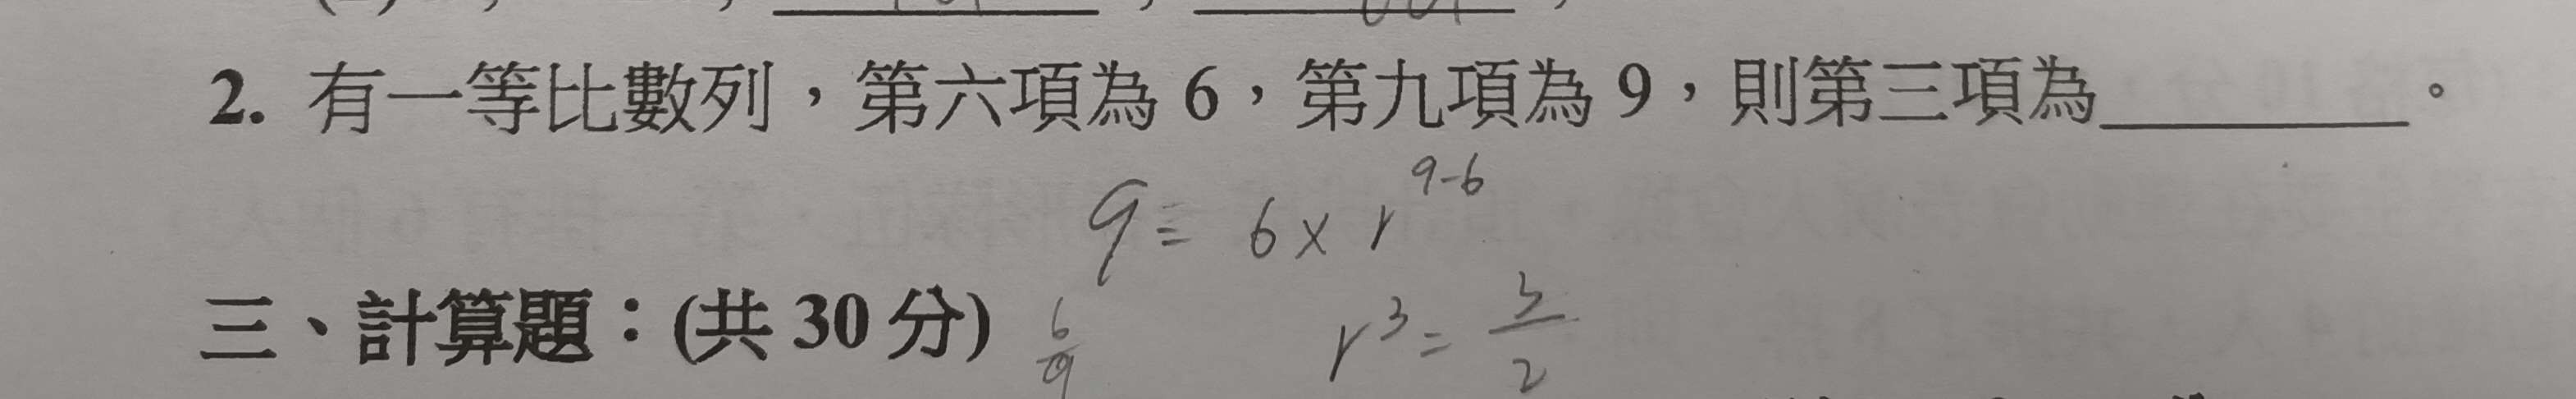 2. 有一等比數列，第六項為 6，第九項為 9，則第三項為________。
9 = 6 × r^(9-6)
三、計算題：(共 30 分) 6/9 r³ = 3/2